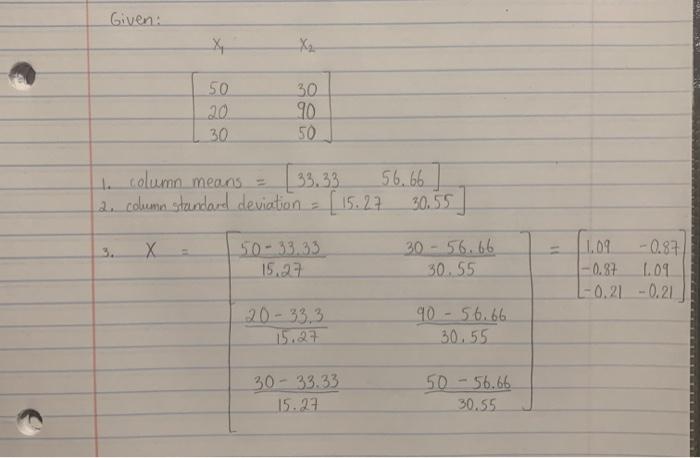 Given:
X₁ X₂
50 30
20 90
30 50
1. column means = [33.33 56.66]
2. column standard deviation = [15.27 30.55]
3. X = [50 - 33.33 / 15.27 30 - 56.66 / 30.55 = [1.09 -0.87
20 - 33.3 / 15.27 90 - 56.66 / 30.55 -0.87 1.09
30 - 33.33 / 15.27 50 - 56.66 / 30.55] -0.21 -0.21]